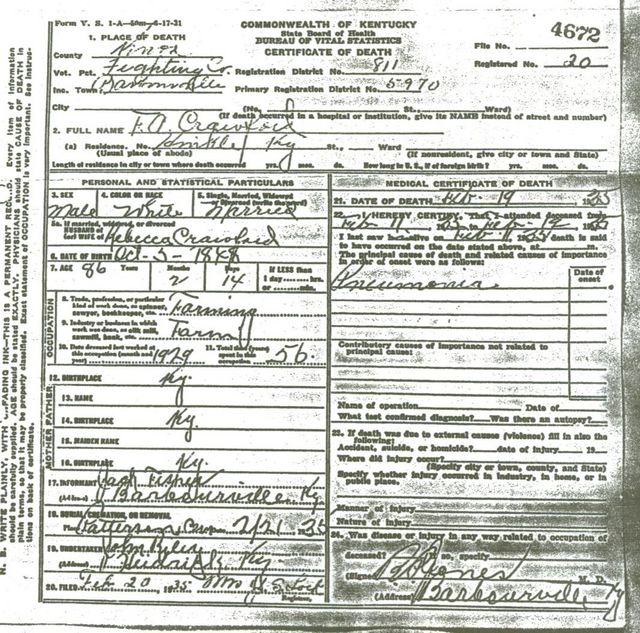 Form V. S. 1-A—50m—6-17-31
COMMONWEALTH OF KENTUCKY
State Board of Health
BUREAU OF VITAL STATISTICS
CERTIFICATE OF DEATH
File No. 4672
Registered No. 20
1. PLACE OF DEATH
County Knox
Vot. Pct. Fighting Registration District No. 811
Inc. Town Primary Registration District No. 5970
City (No. St., Ward)
(If death occurred in a hospital or institution, give its NAME instead of street and number)
2. FULL NAME Crawford
(a) Residence. No. Ky St., Ward
(Usual place of abode) (If nonresident, give city or town and State)
Length of residence in city or town where death occurred yrs. mos. ds. How long in U. S., if of foreign birth? yrs. mos. ds.
PERSONAL AND STATISTICAL PARTICULARS
3. SEX 4. COLOR OR RACE 5. Single, Married, Widowed or Divorced (write the word)
Male White Married
5a. If married, widowed or divorced
HUSBAND of
(or) WIFE of Rebecca Crawford
6. DATE OF BIRTH Oct-5-1848
7. AGE 86 Years Months 2 Days 14 If LESS than
1 day hrs.
or min.
OCCUPATION
8. Trade, profession, or particular
kind of work done, as spinner,
sawyer, bookkeeper, etc. Farming
9. Industry or business in which
work was done, as silk mill,
sawmill, bank, etc. Farm
10. Date deceased last worked at
this occupation (month and
year) 1929
11. Total time (years)
spent in this
occupation 56
12. BIRTHPLACE Ky.
FATHER
13. NAME
14. BIRTHPLACE Ky.
MOTHER
15. MAIDEN NAME
16. BIRTHPLACE Ky.
17. INFORMANT Fisher
(Address) Barbourville, Ky.
18. BURIAL, CREMATION, OR REMOVAL
Place Patterson 2/21 1935
19. UNDERTAKER John
(Address) Ky
20. FILED Feb 20 1935 Mrs
Registrar.
MEDICAL CERTIFICATE OF DEATH
21. DATE OF DEATH Feb-19 1935
22. I HEREBY CERTIFY, That I attended deceased from
Feb-11 1935 to Feb-19 1935
I last saw h alive on Feb 1935 death is said
to have occurred on the date stated above, at m.
The principal cause of death and related causes of importance
in order of onset were as follows:
Date of
onset
Pneumonia
Contributory causes of importance not related to
principal cause:
Name of operation Date of
What test confirmed diagnosis? Was there an autopsy?
23. If death was due to external causes (violence) fill in also the
following:
Accident, suicide, or homicide? date of injury 19
Where did injury occur?
(Specify city or town, county, and State)
Specify whether injury occurred in industry, in home, or in
public place.
Manner of injury
Nature of injury
24. Was disease or injury in any way related to occupation of
deceased? If so, specify
(Signed) Jones M. D.
(Address) Barbourville, Ky
N. B. WRITE PLAINLY, WITH UNFADING INK—THIS IS A PERMANENT RECORD. Every item of information
should be carefully supplied. AGE should be stated EXACTLY. PHYSICIANS should state CAUSE OF DEATH in
plain terms, so that it may be properly classified. Exact statement of OCCUPATION is very important. See instruc-
tions on back of certificate.